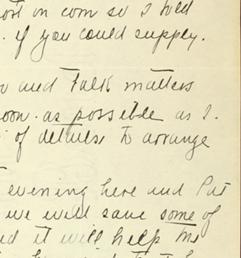 in com so I told
. if you could supply.
and talk matters
soon. as possible as I.
of details to arrange
evening here and Put
we will save some of
it will help me